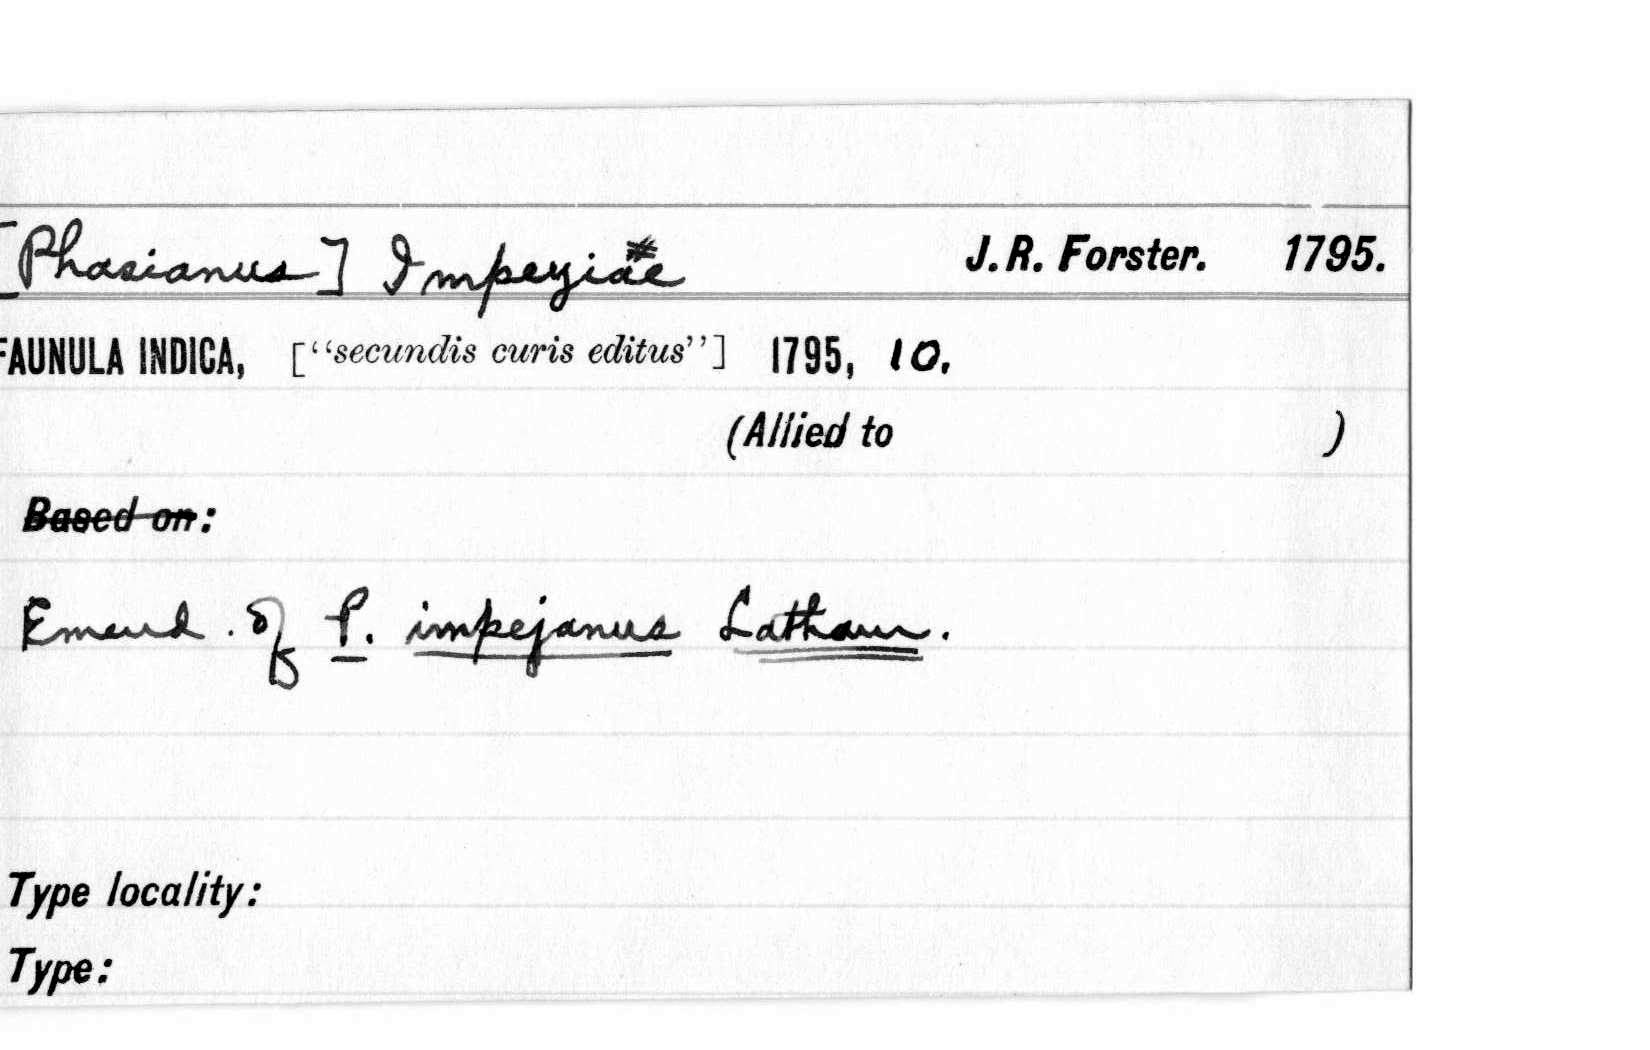 [Phasianus] Impeyiae# J. R. Forster. 1795.
FAUNULA INDICA, [“secundis curis editus”] 1795, 10.
(Allied to )
Based on:
Emend. of P. impejanus Latham.
Type locality:
Type: